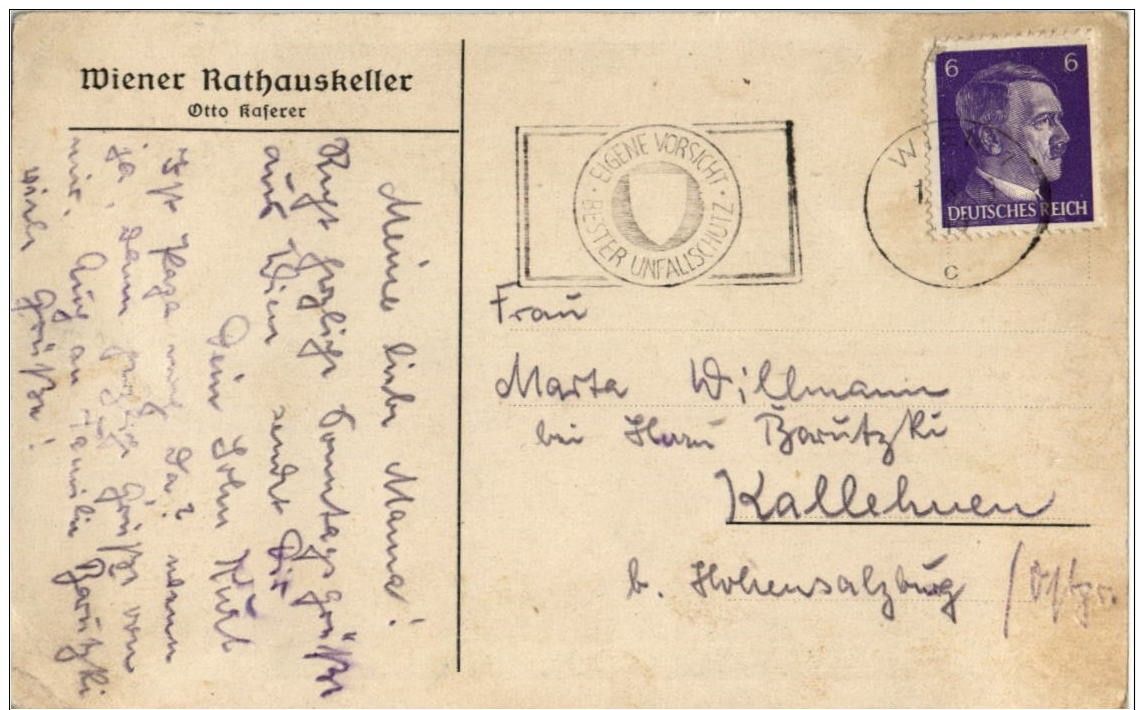 Wiener Rathauskeller
Otto Kaserer
Meine liebe Mama!
Recht herzliche Sonntagsgrüße
aus Wien sendet Dir
Dein Sohn Kurt
Ist Papa noch da? wenn
ja, dann herzliche Grüße von
mir. Auch an Familie Barutzki
viele Grüße!
EIGENE VORSICHT · BESTER UNFALLSCHUTZ ·
WIEN
C
6 6
DEUTSCHES REICH
Frau
Marta Willmann
bei Herrn Barutzki
Kallehnen
b. Hohensalzburg / Ostpr.